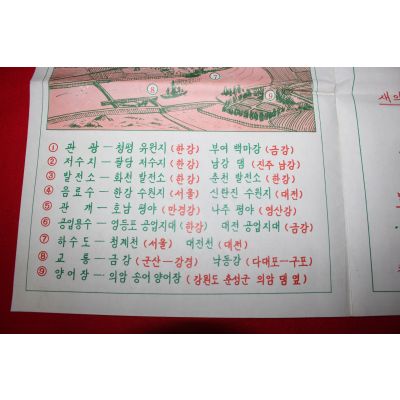 ⑦
⑧
⑨
① 관 광 — 청평 유원지 (한강) 부여 백마강 (금강)
② 저수지 — 팔당 저수지 (한강) 남강 댐 (진주 남강)
③ 발전소 — 화천 발전소 (한강) 춘천 발전소 (한강)
④ 음료수 — 한강 수원지 (서울) 신탄진 수원지 (대전)
⑤ 관 개 — 호남 평야 (만경강) 나주 평야 (영산강)
⑥ 공업용수 — 영등포 공업지대 (한강) 대전 공업지대 (금강)
⑦ 하수도 — 청계천 (서울) 대전천 (대전)
⑧ 교 통 — 금 강 (군산—강경) 낙동강 (다대포—구포)
⑨ 양어장 — 의암 송어 양어장 (강원도 춘성군 의암 댐 옆)